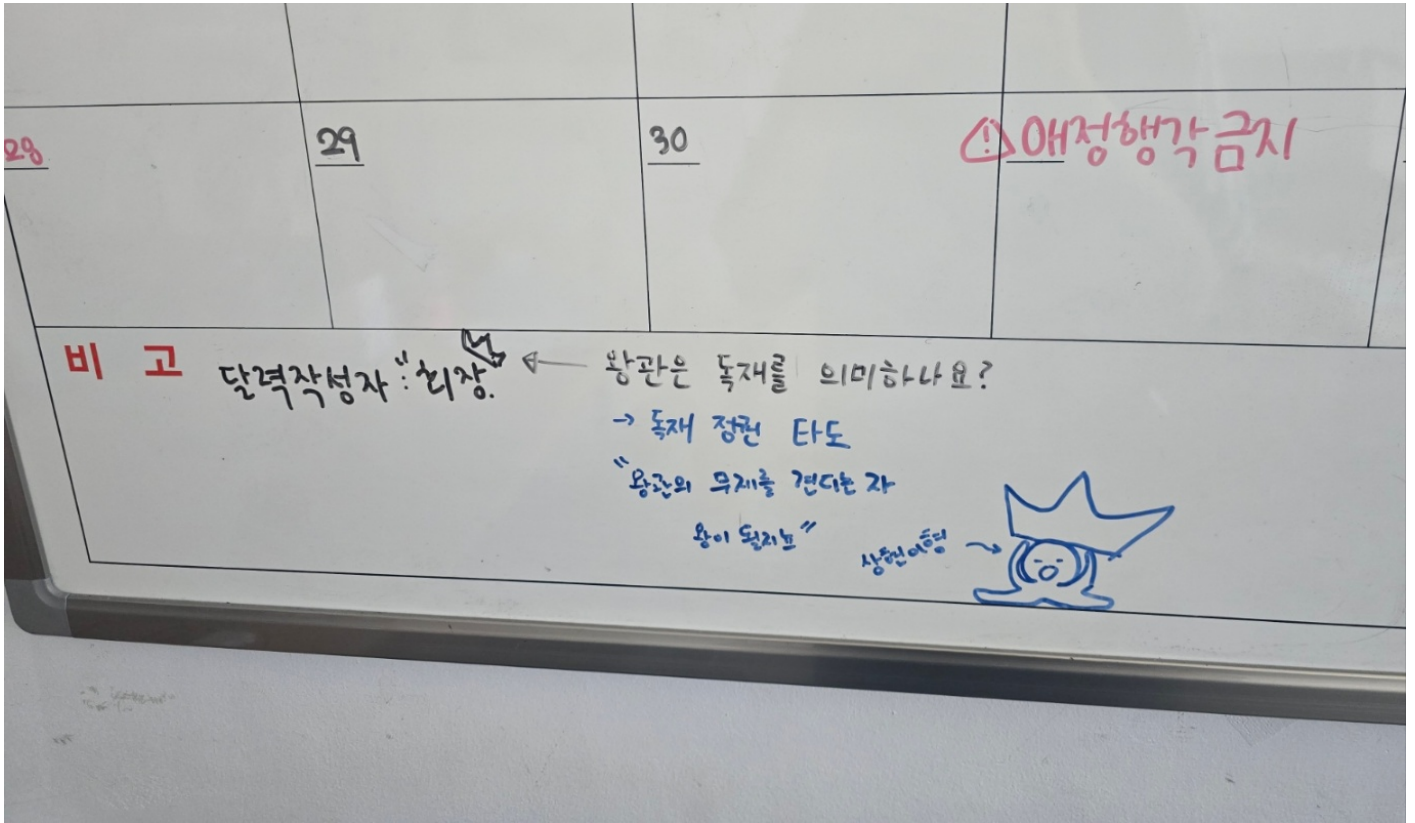 28 29 30 애정행각금지
비 고 달력작성자 : "회장. 왕관은 독재를 의미하나요?
→ 독재 정권 타도
"왕관의 무게를 견디는 자
왕이 될지뇨"
상헌이형 →